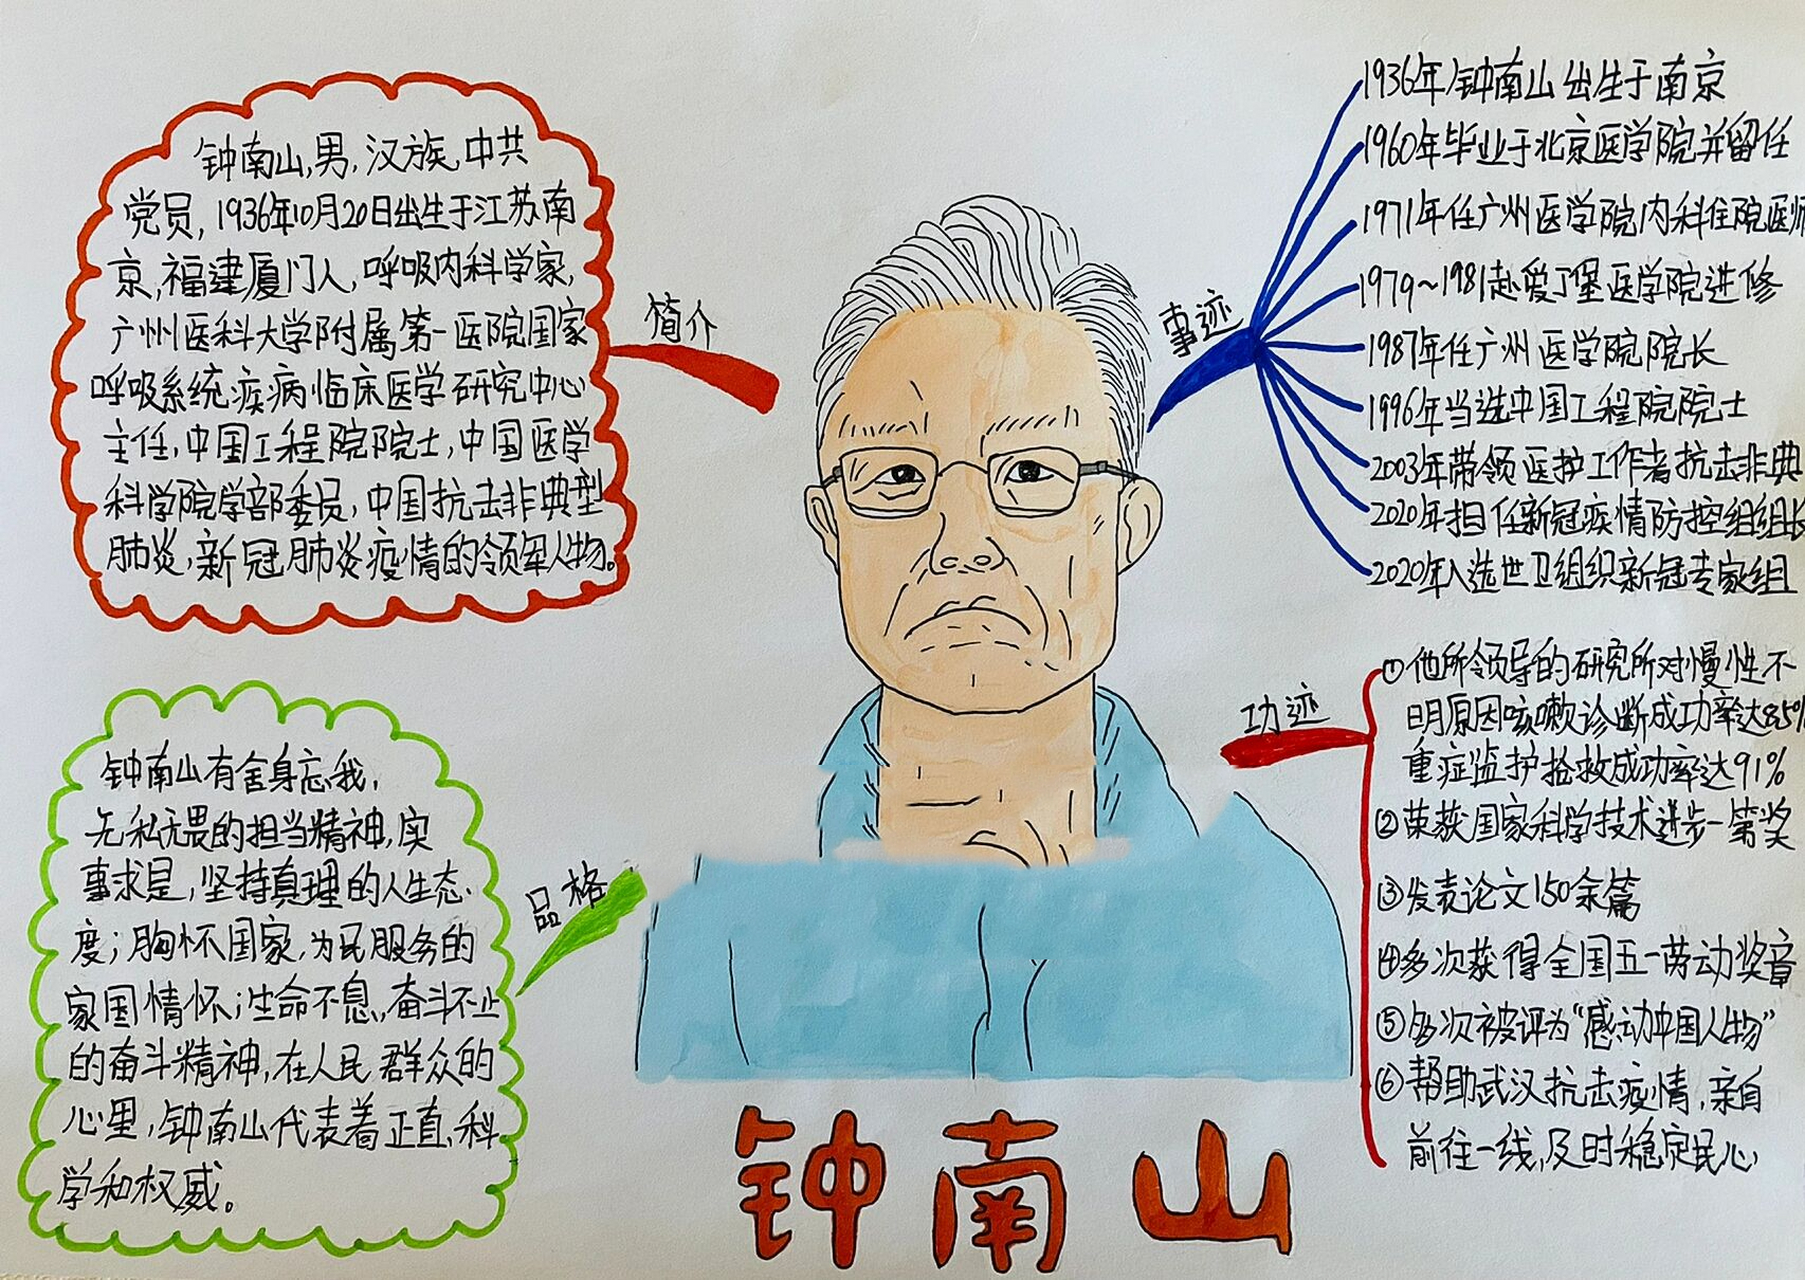 钟南山,男,汉族,中共
党员,1936年10月20日出生于江苏南
京,福建厦门人,呼吸内科学家,
广州医科大学附属第一医院国家
呼吸系统疾病临床医学研究中心
主任,中国工程院院士,中国医学
科学院学部委员,中国抗击非典型
肺炎,新冠肺炎疫情的领军人物。
简介
事迹
1936年钟南山出生于南京
1960年毕业于北京医学院并留任
1971年任广州医学院内科住院医师
1979~1981赴爱丁堡医学院进修
1987年任广州医学院院长
1996年当选中国工程院院士
2003年带领医护工作者抗击非典
2020年担任新冠疫情防控组组长
2020年入选世卫组织新冠专家组
钟南山有舍身忘我,
无私无畏的担当精神,实
事求是,坚持真理的人生态
度;胸怀国家,为民服务的
家国情怀;生命不息,奋斗不止
的奋斗精神,在人民群众的
心里,钟南山代表着正直,科
学和权威。
品格
功迹
①他所领导的研究所对慢性不
明原因咳嗽诊断成功率达85%
重症监护抢救成功率达91%
②荣获国家科学技术进步一等奖
③发表论文150余篇
④多次获得全国五一劳动奖章
⑤多次被评为“感动中国人物”
⑥帮助武汉抗击疫情,亲自
前往一线,及时稳定民心
钟南山